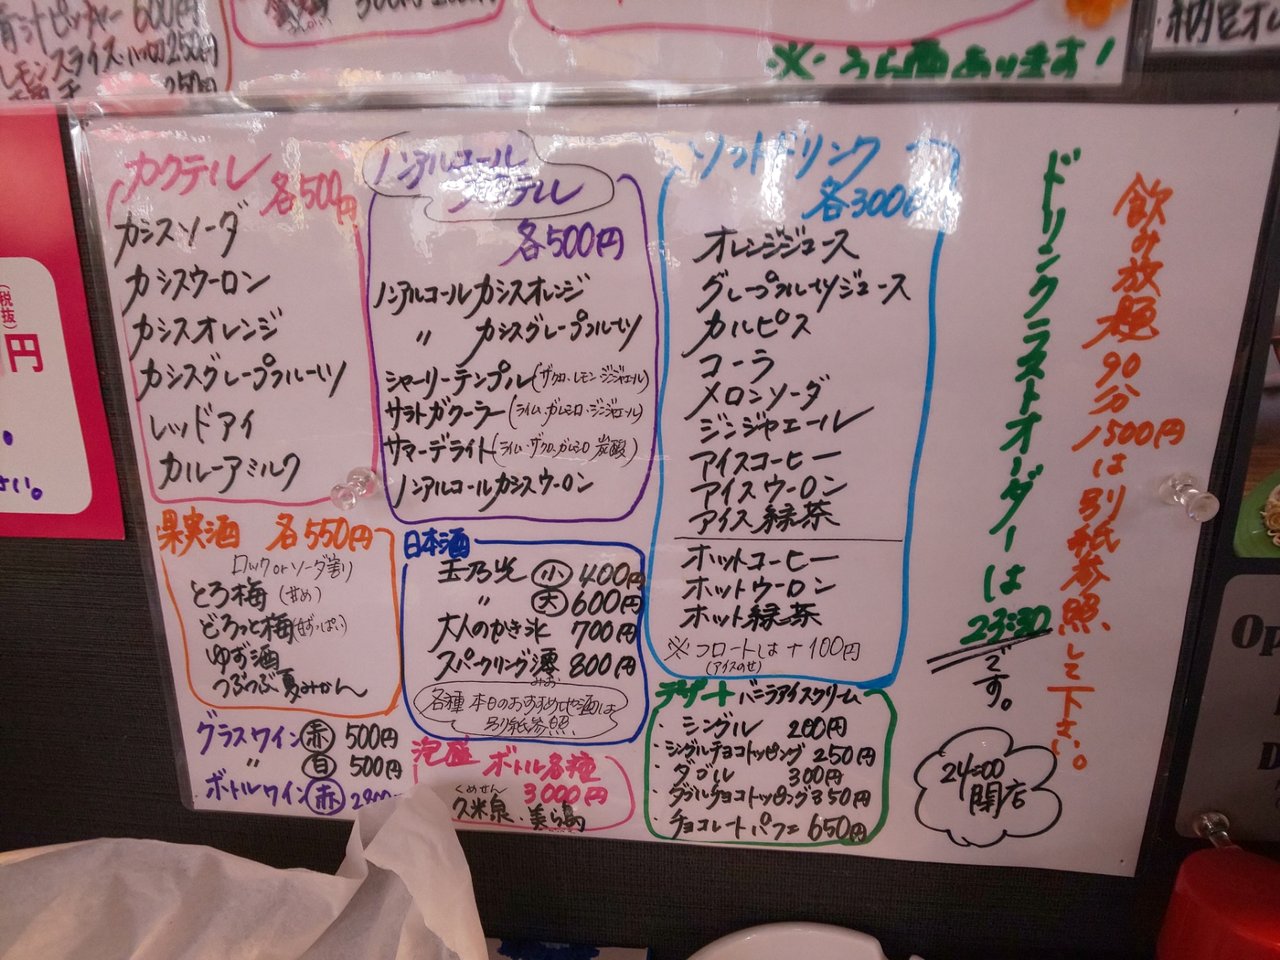 青汁ピッチャー 600円
レモンスライス・ハツ切 250円
250円
※うら面あります!
(税抜)
円
カクテル 各500円
カシスソーダ
カシスウーロン
カシスオレンジ
カシスグレープフルーツ
レッドアイ
カルーアミルク
ノンアルコール
カクテル
各500円
ノンアルコールカシスオレンジ
〃 カシスグレープフルーツ
シャーリーテンプル(ザクロ・レモン・ジンジャエール)
サラトガクーラー(ライム・ガムシロ・ジンジャエール)
サマーデライト(ライム・ザクロ・ガムシロ 炭酸)
ノンアルコールカシスウーロン
ソフトドリンク
各300円
オレンジジュース
グレープフルーツジュース
カルピス
コーラ
メロンソーダ
ジンジャエール
アイスコーヒー
アイスウーロン
アイス緑茶
ホットコーヒー
ホットウーロン
ホット緑茶
※フロートは+100円
(アイスのせ)
果実酒 各550円
ロックorソーダ割り
とろ梅(甘め)
どろっと梅(甘ずっぱい)
ゆず酒
つぶつぶ夏みかん
グラスワイン(赤) 500円
〃 (白) 500円
ボトルワイン(赤)
日本酒
玉乃光 (小) 400円
〃 (大) 600円
大人のかき氷 700円
スパークリング澪 800円
みお
各種本日のおすすめ地酒は
別紙参照
泡盛 ボトル各種
3000円
くめせん
久米泉・美ら島
デザート バニラアイスクリーム
・シングル 200円
・シングルチョコトッピング 250円
・ダブル 300円
・ダブルチョコトッピング 350円
・チョコレートパフェ 650円
飲み放題90分1500円は別紙参照して下さい。
ドリンクラストオーダーは23:30です。
24:00
閉店